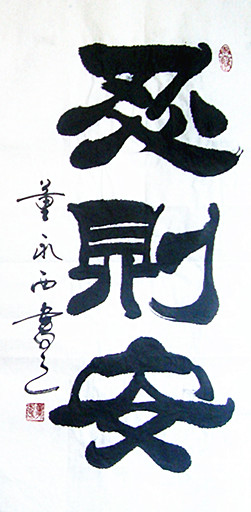 忍则安
董永西書之